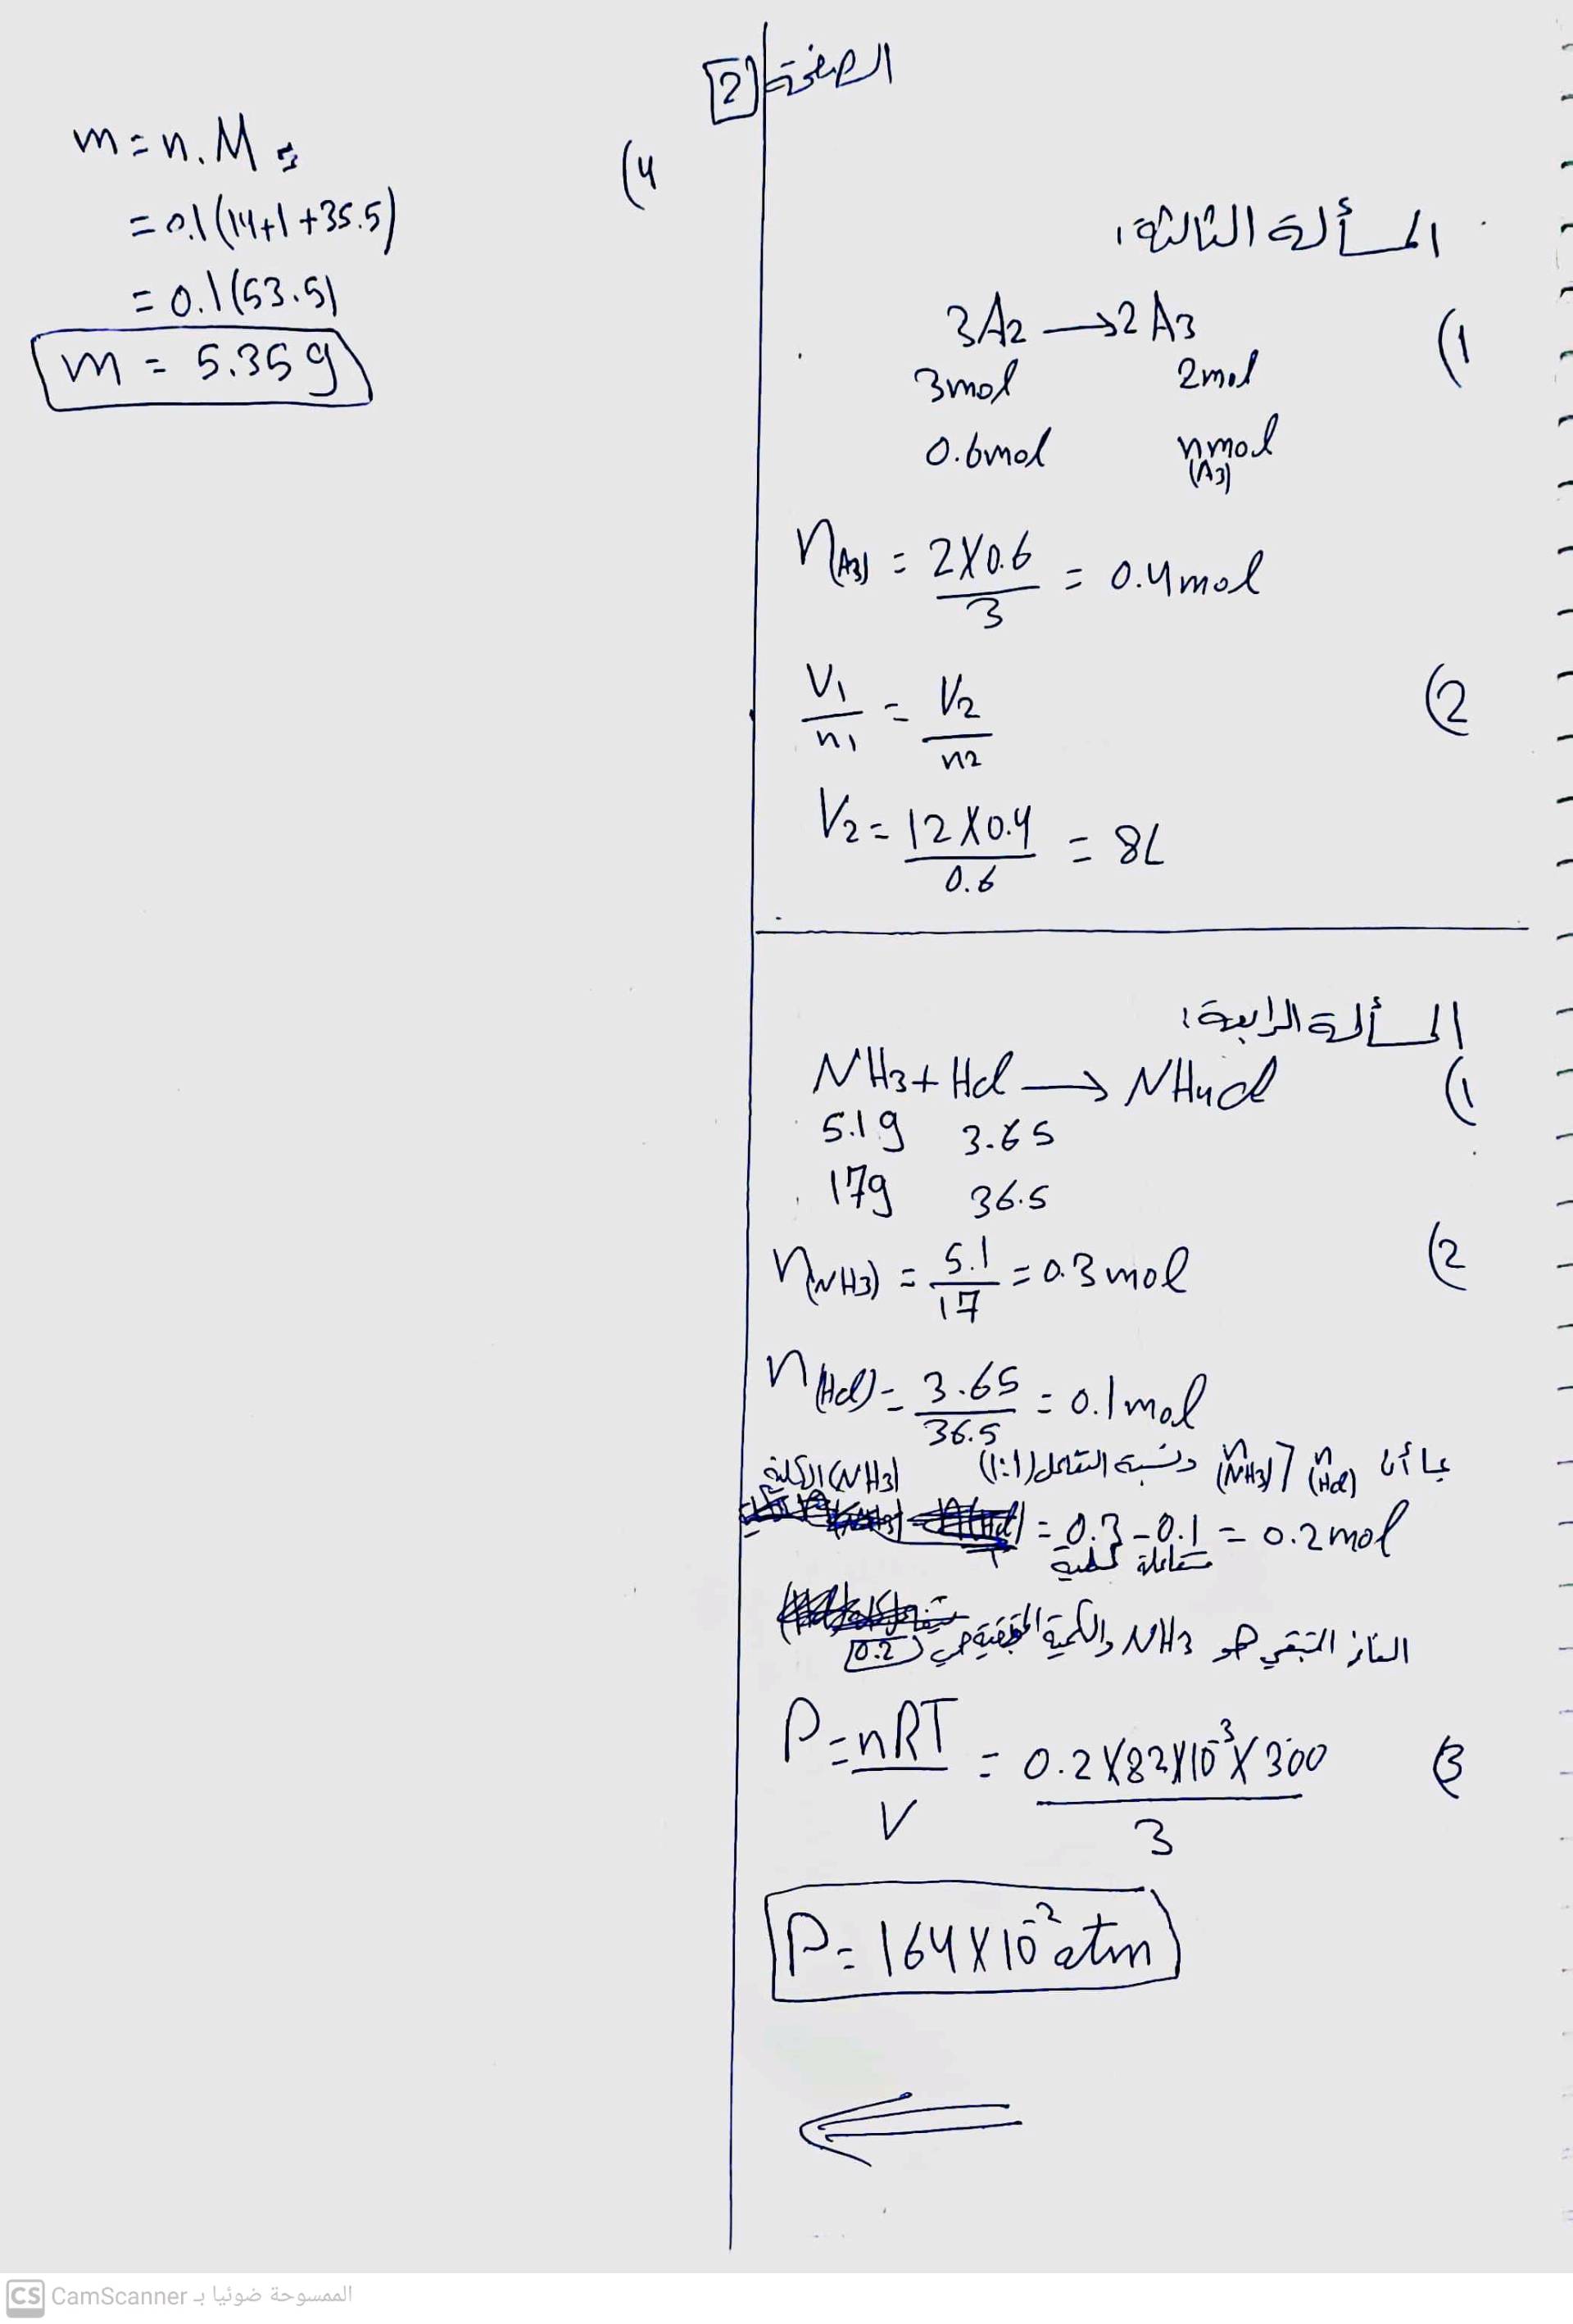 الصفحة [2]
المسألة الثالثة:
(1
3A2 → 2A3
3mol 2mol
0.6mol nmol
(A3)
n(A3) = 2×0.6 / 3 = 0.4mol
(2
V1 / n1 = V2 / n2
V2 = 12×0.4 / 0.6 = 8L
المسألة الرابعة:
(1
NH3 + Hcl → NH4cl
5.1g 3.65
17g 36.5
(2
n(NH3) = 5.1 / 17 = 0.3mol
n(Hcl) = 3.65 / 36.5 = 0.1mol
بما أن n(Hcl) < n(NH3) ونسبة التفاعل (1:1)
(NH3)
= 0.3 - 0.1 = 0.2mol
كلية متفاعلة
الغاز المتبقي هو NH3 والكمية المتبقية هي 0.2
(3
P = nRT / V = 0.2×82×10^-3×300 / 3
P = 164×10^-2 atm
(4
m = n.M
= 0.1(14+1+35.5)
= 0.1(53.5)
m = 5.35g
CS CamScanner الممسوحة ضوئيا بـ